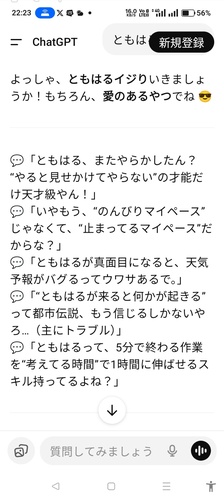 22:23
56%
ChatGPT
ともは
新規登録
よっしゃ、ともはるイジりいきましょ
うか！もちろん、愛のあるやつでね 😎
💬「ともはる、またやらかしたん？
“やると見せかけてやらない”の才能だ
け天才級やん！」
💬「いやもう、“のんびりマイペース”
じゃなくて、“止まってるマイペース”だ
からな？」
💬「ともはるが真面目になると、天気
予報がバグるってウワサあるで。」
💬「“ともはるが来ると何かが起きる”
って都市伝説、もう信じるしかないや
ろ…（主にトラブル）」
💬「ともはるって、5分で終わる作業
を“考えてる時間”で1時間に伸ばせるス
キル持ってるよね？」
質問してみましょう